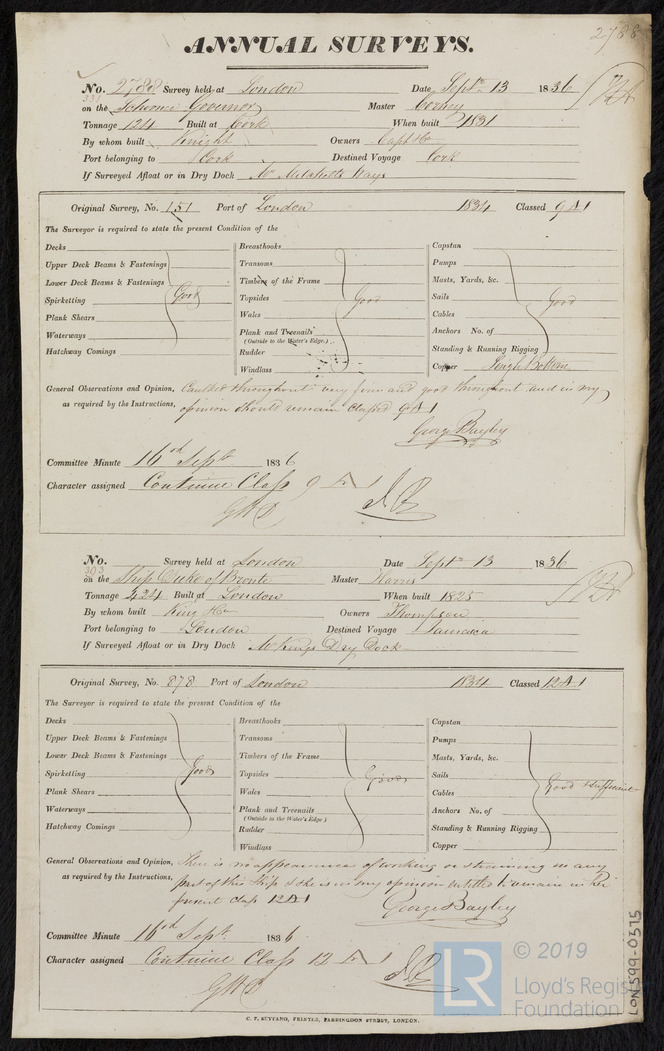 2788
ANNUAL SURVEYS.
No. 2788 Survey held at London Date Septr. 13 1836
on the Schooner Governor Master
Tonnage 124 Built at Cork When built 1831
By whom built Knight Owners Capt & Co
Port belonging to Cork Destined Voyage Cork
If Surveyed Afloat or in Dry Dock Mr Mitchells Ways
Original Survey, No. 151 Port of London 1834 Classed 9 A 1
The Surveyor is required to state the present Condition of the
Decks Breasthooks Capstan
Upper Deck Beams & Fastenings Transoms Pumps
Lower Deck Beams & Fastenings Timbers of the Frame Masts, Yards, &c.
Spirketting Good Topsides Good Sails Good
Plank Shears Wales Cables
Waterways Plank and Treenails Anchors No. of
(Outside to the Water's Edge.)
Hatchway Comings Rudder Standing & Running Rigging
Windlass Copper Single Bottom
General Observations and Opinion, Caulked throughout very firm and good throughout and in my
as required by the Instructions, opinion should remain classed 9 A 1
George Bayley
Committee Minute 16th Septr 1836
Character assigned Continue Class 9 A 1
No. Survey held at London Date Septr 13 1836
303
on the Ship Duke of Bronte Master Harris
Tonnage 424 Built at London When built 1825
By whom built King & Co Owners Thompson
Port belonging to London Destined Voyage Jamaica
If Surveyed Afloat or in Dry Dock Mr Kings Dry Dock
Original Survey, No. 878 Port of London 1834 Classed 12 A 1
The Surveyor is required to state the present Condition of the
Decks Breasthooks Capstan
Upper Deck Beams & Fastenings Transoms Pumps
Lower Deck Beams & Fastenings Timbers of the Frame Masts, Yards, &c.
Spirketting Good Topsides Good Sails Good & sufficient
Plank Shears Wales Cables
Waterways Plank and Treenails Anchors No. of
(Outside to the Water's Edge.)
Hatchway Comings Rudder Standing & Running Rigging
Windlass Copper
General Observations and Opinion, There is no appearance of working or straining in any
as required by the Instructions, part of this Ship & she is in my opinion entitled to remain in her
present class 12 A 1
George Bayley
Committee Minute 16th Septr. 1836
Character assigned Continue Class 12 A 1
C. F. SEYFANG, PRINTER, FARRINGDON STREET, LONDON.
LON 599-0315
LR © 2019
Lloyd's Regist
Foundation